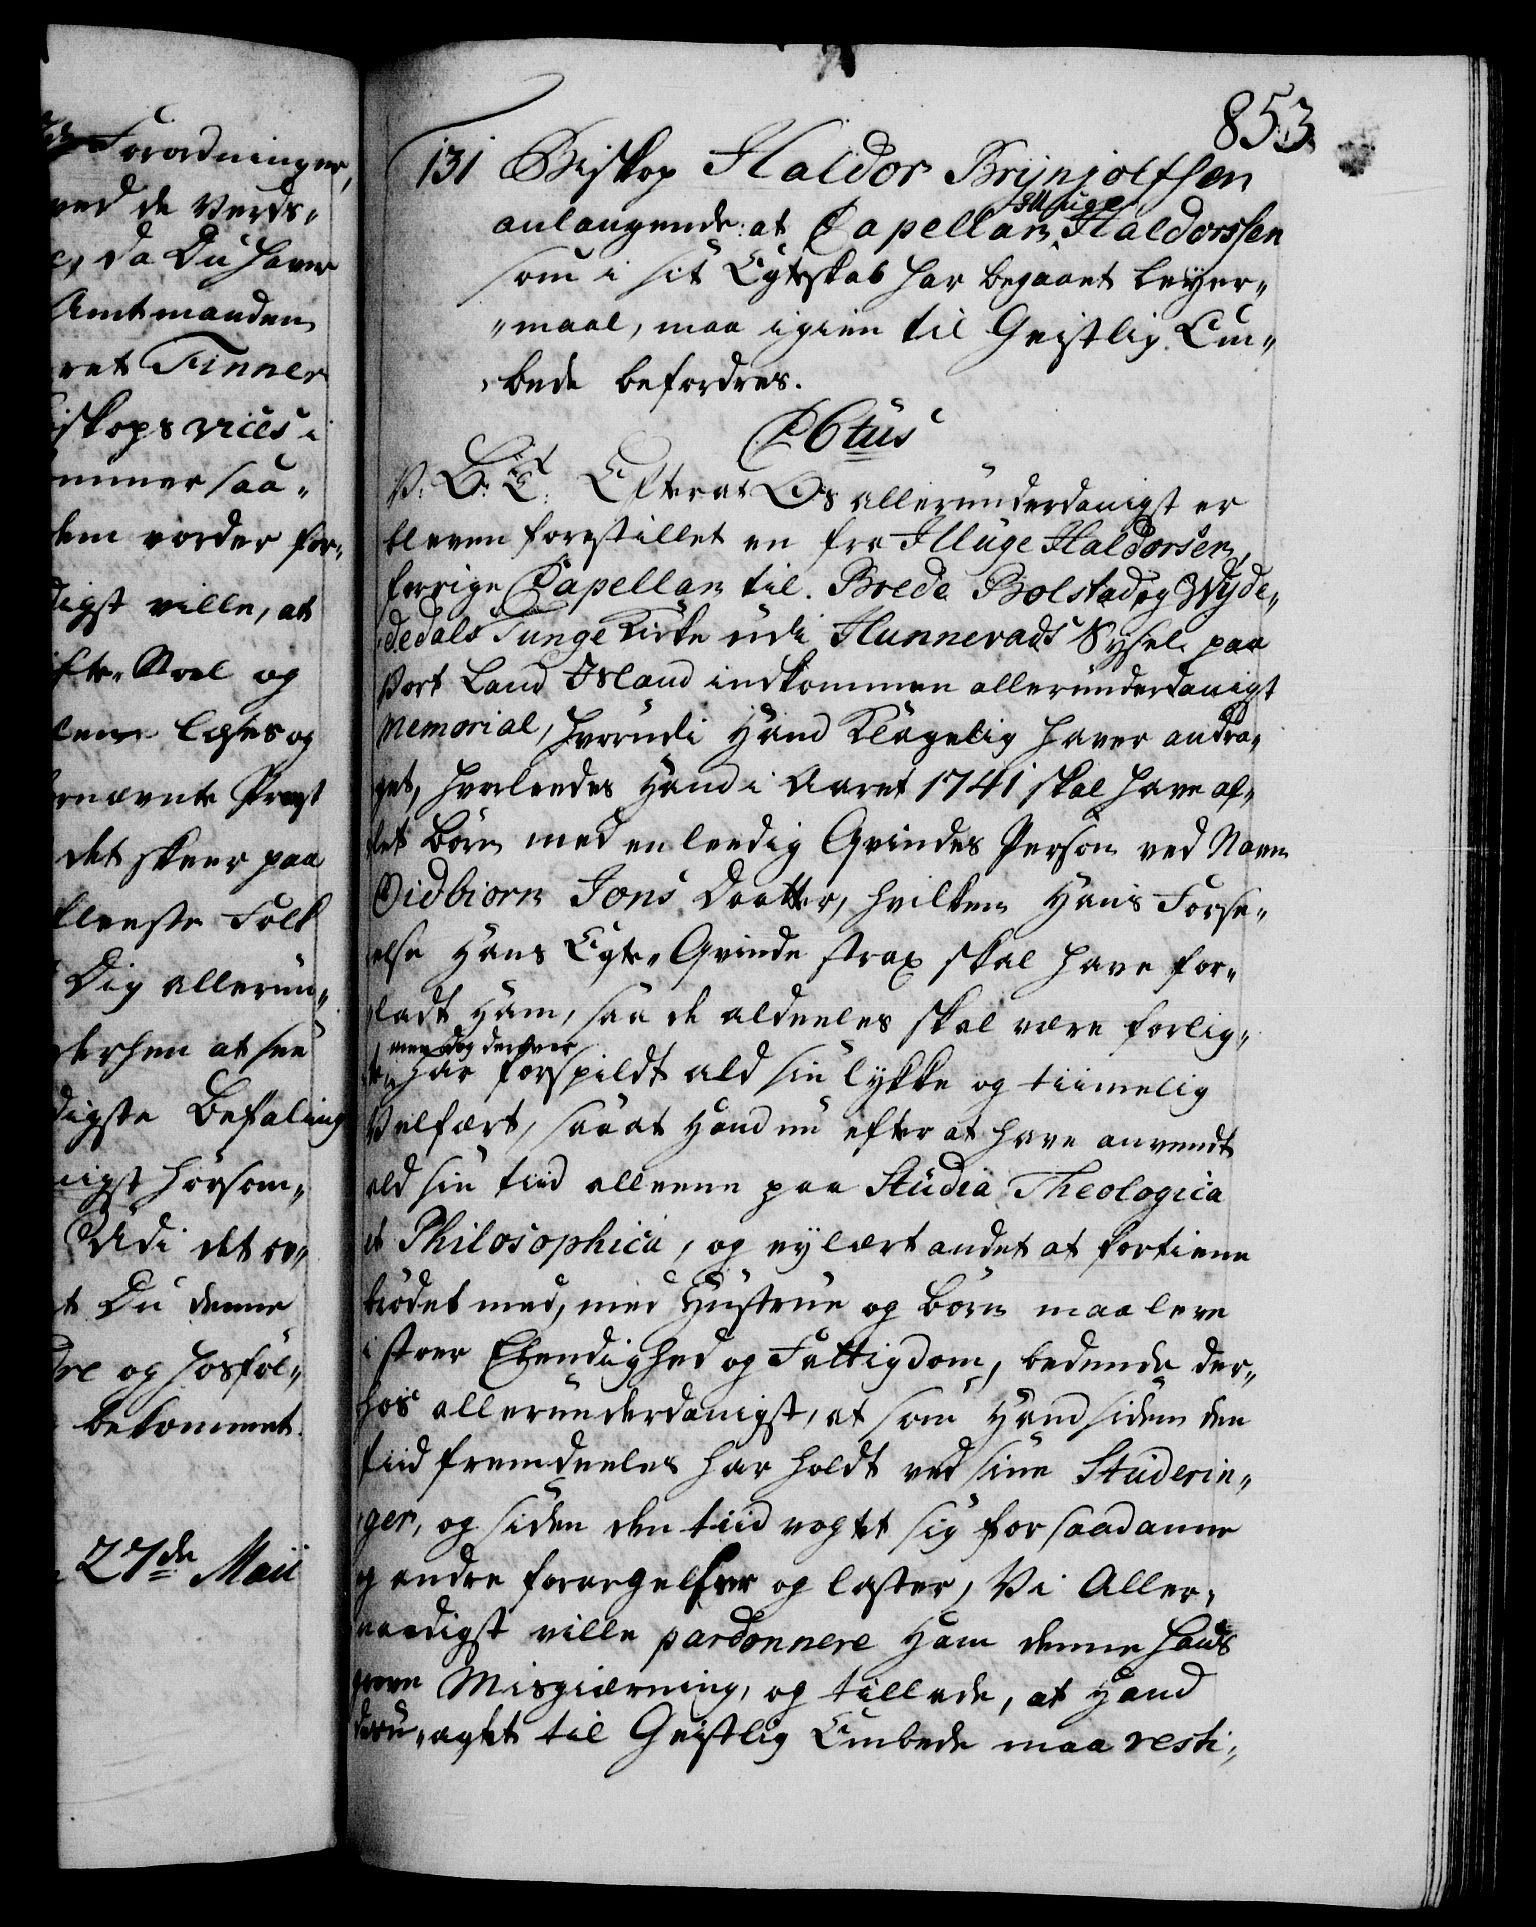 Forordninger,
ved de Verds-
da Du haver
Amtmanden
ret Finner
iskops vices i
immer saa-
dem vorder for-
digst ville, at
ifts-Stoel og
læses og
ernævnte Provst
det skeer paa
fleeste Folk
Dig allerun-
derhen at see
digste Befaling
nigst hörsom-
Udi det ov-
Du denne
dre og hosföl-
bekommet.
27de Maii
853
131 Biskop Haldor Brijnjolfsen
anlangende: at Capellan Illuge Haldorssen
som i sit Egteskab har begaaet Leyer-
-maal, maa igien til Geistlig Em-
-bede befordres.
C6tus
V: G: T: Efterat Os allerunderdanigst er
bleven forestillet en fra Illuge Haldorsen,
forrige Capellan til Brede Bolstad og Wyde-
dedals Tunge Kirke udi Hunnevads Sysel paa
Vort Land Island indkommen allerunderdanigst
Memorial, hvorudi Hand klagelig haver andra-
get, hvorleedes Hand i Aaret 1741 skal have af-
let Börn med en leedig Qvindes Person ved Navn
Oidbiorn Jons Daatter, hvilken Hans Forse-
else Hans Egte-Qvinde strax skal have for-
ladt Ham, saa de aldeeles skal være forlig-
te, men dog derover har forspildt ald sin lykke og tiimelig
Velfært, saa at Hand nu efter at have anvendt
ald sin tiid alleene paa Studia Theologica
et Philosophica, og ey lært andet at fortiene
brödet med, med Hustrue og Börn maa leve
i stoer Elendighed og Fattigdom, bedende der-
hos allerunderdanigst, at som Hand siden den
tiid fremdeeles har holdt ved sine Studerin-
ger, og siden den tiid vogtet sig for saadanne
og andre forargelser og laster, Vi Aller-
naadigst ville pardonnere Ham denne hans
grove Misgierning, og tillade, at Hand
deru-agtet til Geistlig Embede maa resti-